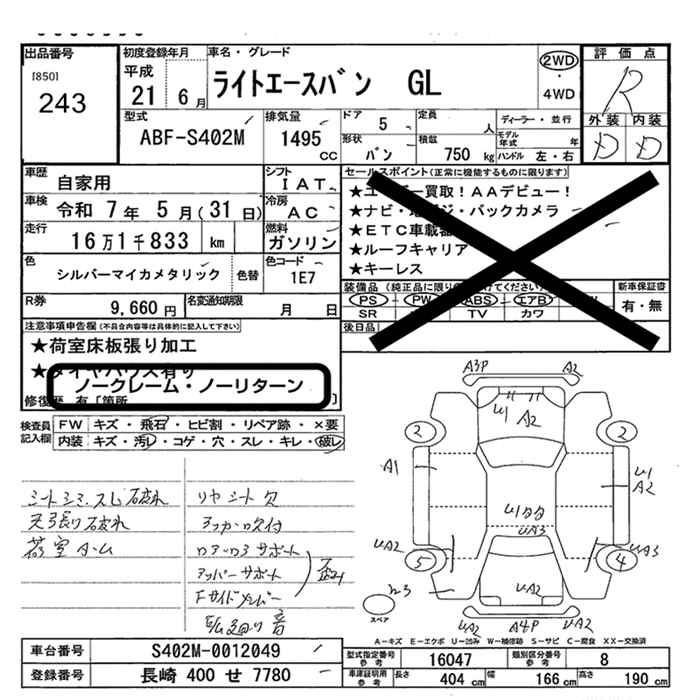 出品番号
[850]
243
初度登録年月
平成
21 6月
車名・グレード
ライトエースバン GL
2WD
・
4WD
評価点
R
外装 内装
D D
型式
ABF-S402M
排気量
1495
cc
ドア
5
形状
バン
定員
人
積載
750 kg
ディーラー・並行
モデル年式 年
ハンドル 左・右
車歴
自家用
シフト
IAT
車検
令和 7年 5月(31日)
冷房
AC
走行
16万1千833 km
燃料
ガソリン
色
シルバーマイカメタリック
色替
色コード
1E7
R券
9,660 円
名変通知期限
月 日
セールスポイント(正常に機能するものに限ります)
買取!AAデビュー!
★ナビ・ ・バックカメラ
★ETC車載器
★ルーフキャリア
★キーレス
装備品
PS PW ABS エアB
SR TV カワ
新車保証書
有・無
後日品
注意事項申告欄(不具合内容等は具体的に記入して下さい)
★荷室床板張り加工
ノークレーム・ノーリターン
検査員記入欄
FW キズ・飛石・ヒビ割・リペア跡・×要
内装 キズ・汚レ・コゲ・穴・スレ・キレ・破レ
シートシミ・スレ破れ
天張り破れ
荷室
リヤシート穴
アッパーサポート
歪み
音
A3P A2
U1 A2
2 2
A1
U1
A2
UA3
UA2 UA3
5 4
UA2
UA2 A4P UA2
スペア
A-キズ E-エクボ U-凹み W-補修跡 S-サビ C-腐食 XX-交換済
車台番号
S402M-0012049
登録番号
長崎 400 せ 7780
型式指定番号 参考
16047
類別区分番号 参考
8
車庫証明用 参考
長さ 404 cm
幅 166 cm
高さ 190 cm